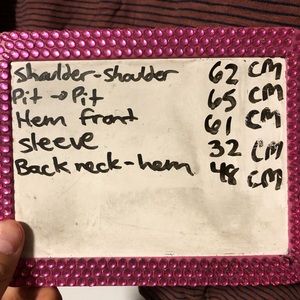 Shoulder-shoulder 62 cm
Pit → Pit 65 cm
Hem front 61 cm
Sleeve 32 cm
Back neck-hem 48 cm